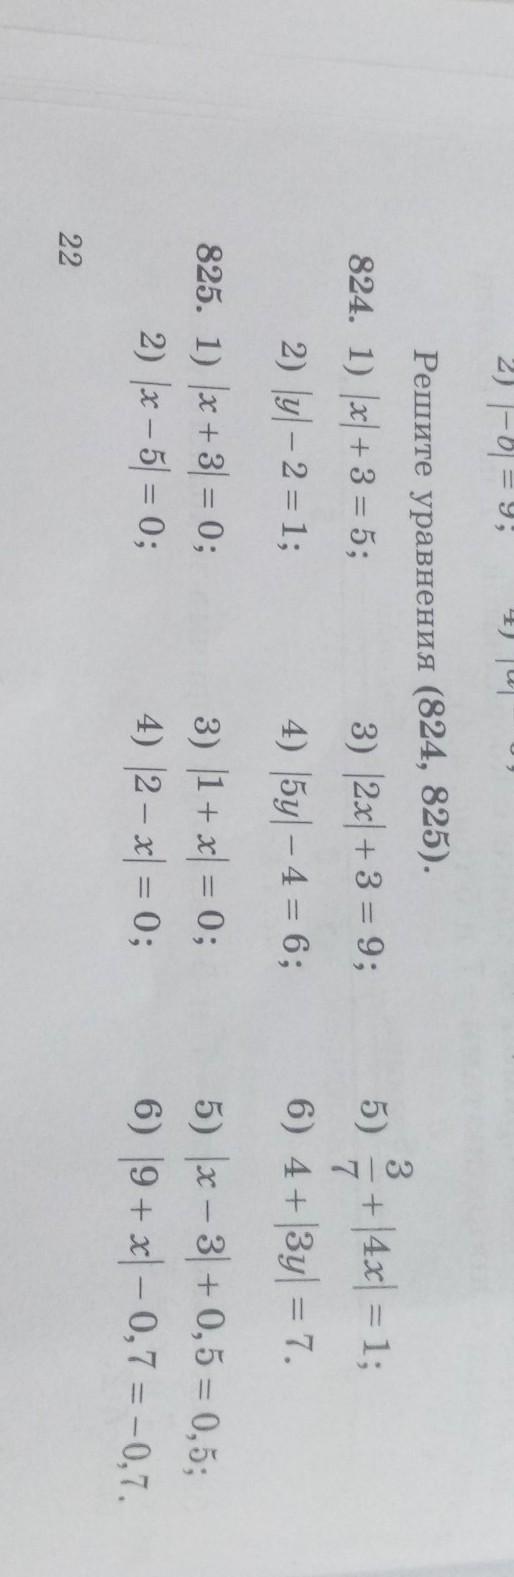 2) |−b| = 9; 4)
Решите уравнения (824, 825).
824. 1) |x| + 3 = 5; 3) |2x| + 3 = 9; 5) 3/7 + |4x| = 1;
2) |y| − 2 = 1; 4) |5y| − 4 = 6; 6) 4 + |3y| = 7.
825. 1) |x + 3| = 0; 3) |1 + x| = 0; 5) |x − 3| + 0,5 = 0,5;
2) |x − 5| = 0; 4) |2 − x| = 0; 6) |9 + x| − 0,7 = −0,7.
22